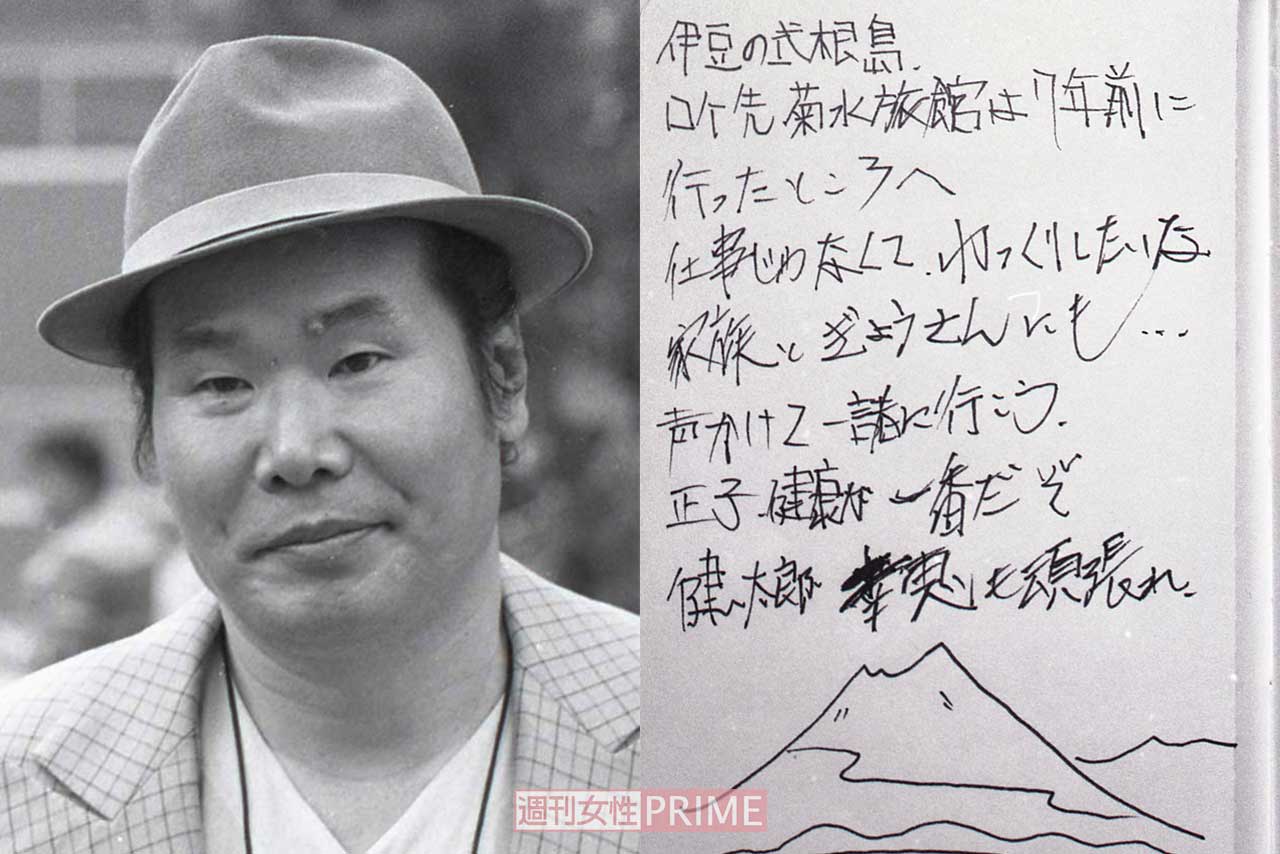 伊豆の式根島、
ロケ先菊水旅館は7年前に
行ったところへ
仕事じわなくて、ゆっくりしたいな
家族とぎょうさんにも…
声かけて一諸に行こう、
正子、健康が一番だぞ
健太郎 実も頑張れ、
週刊女性PRIME